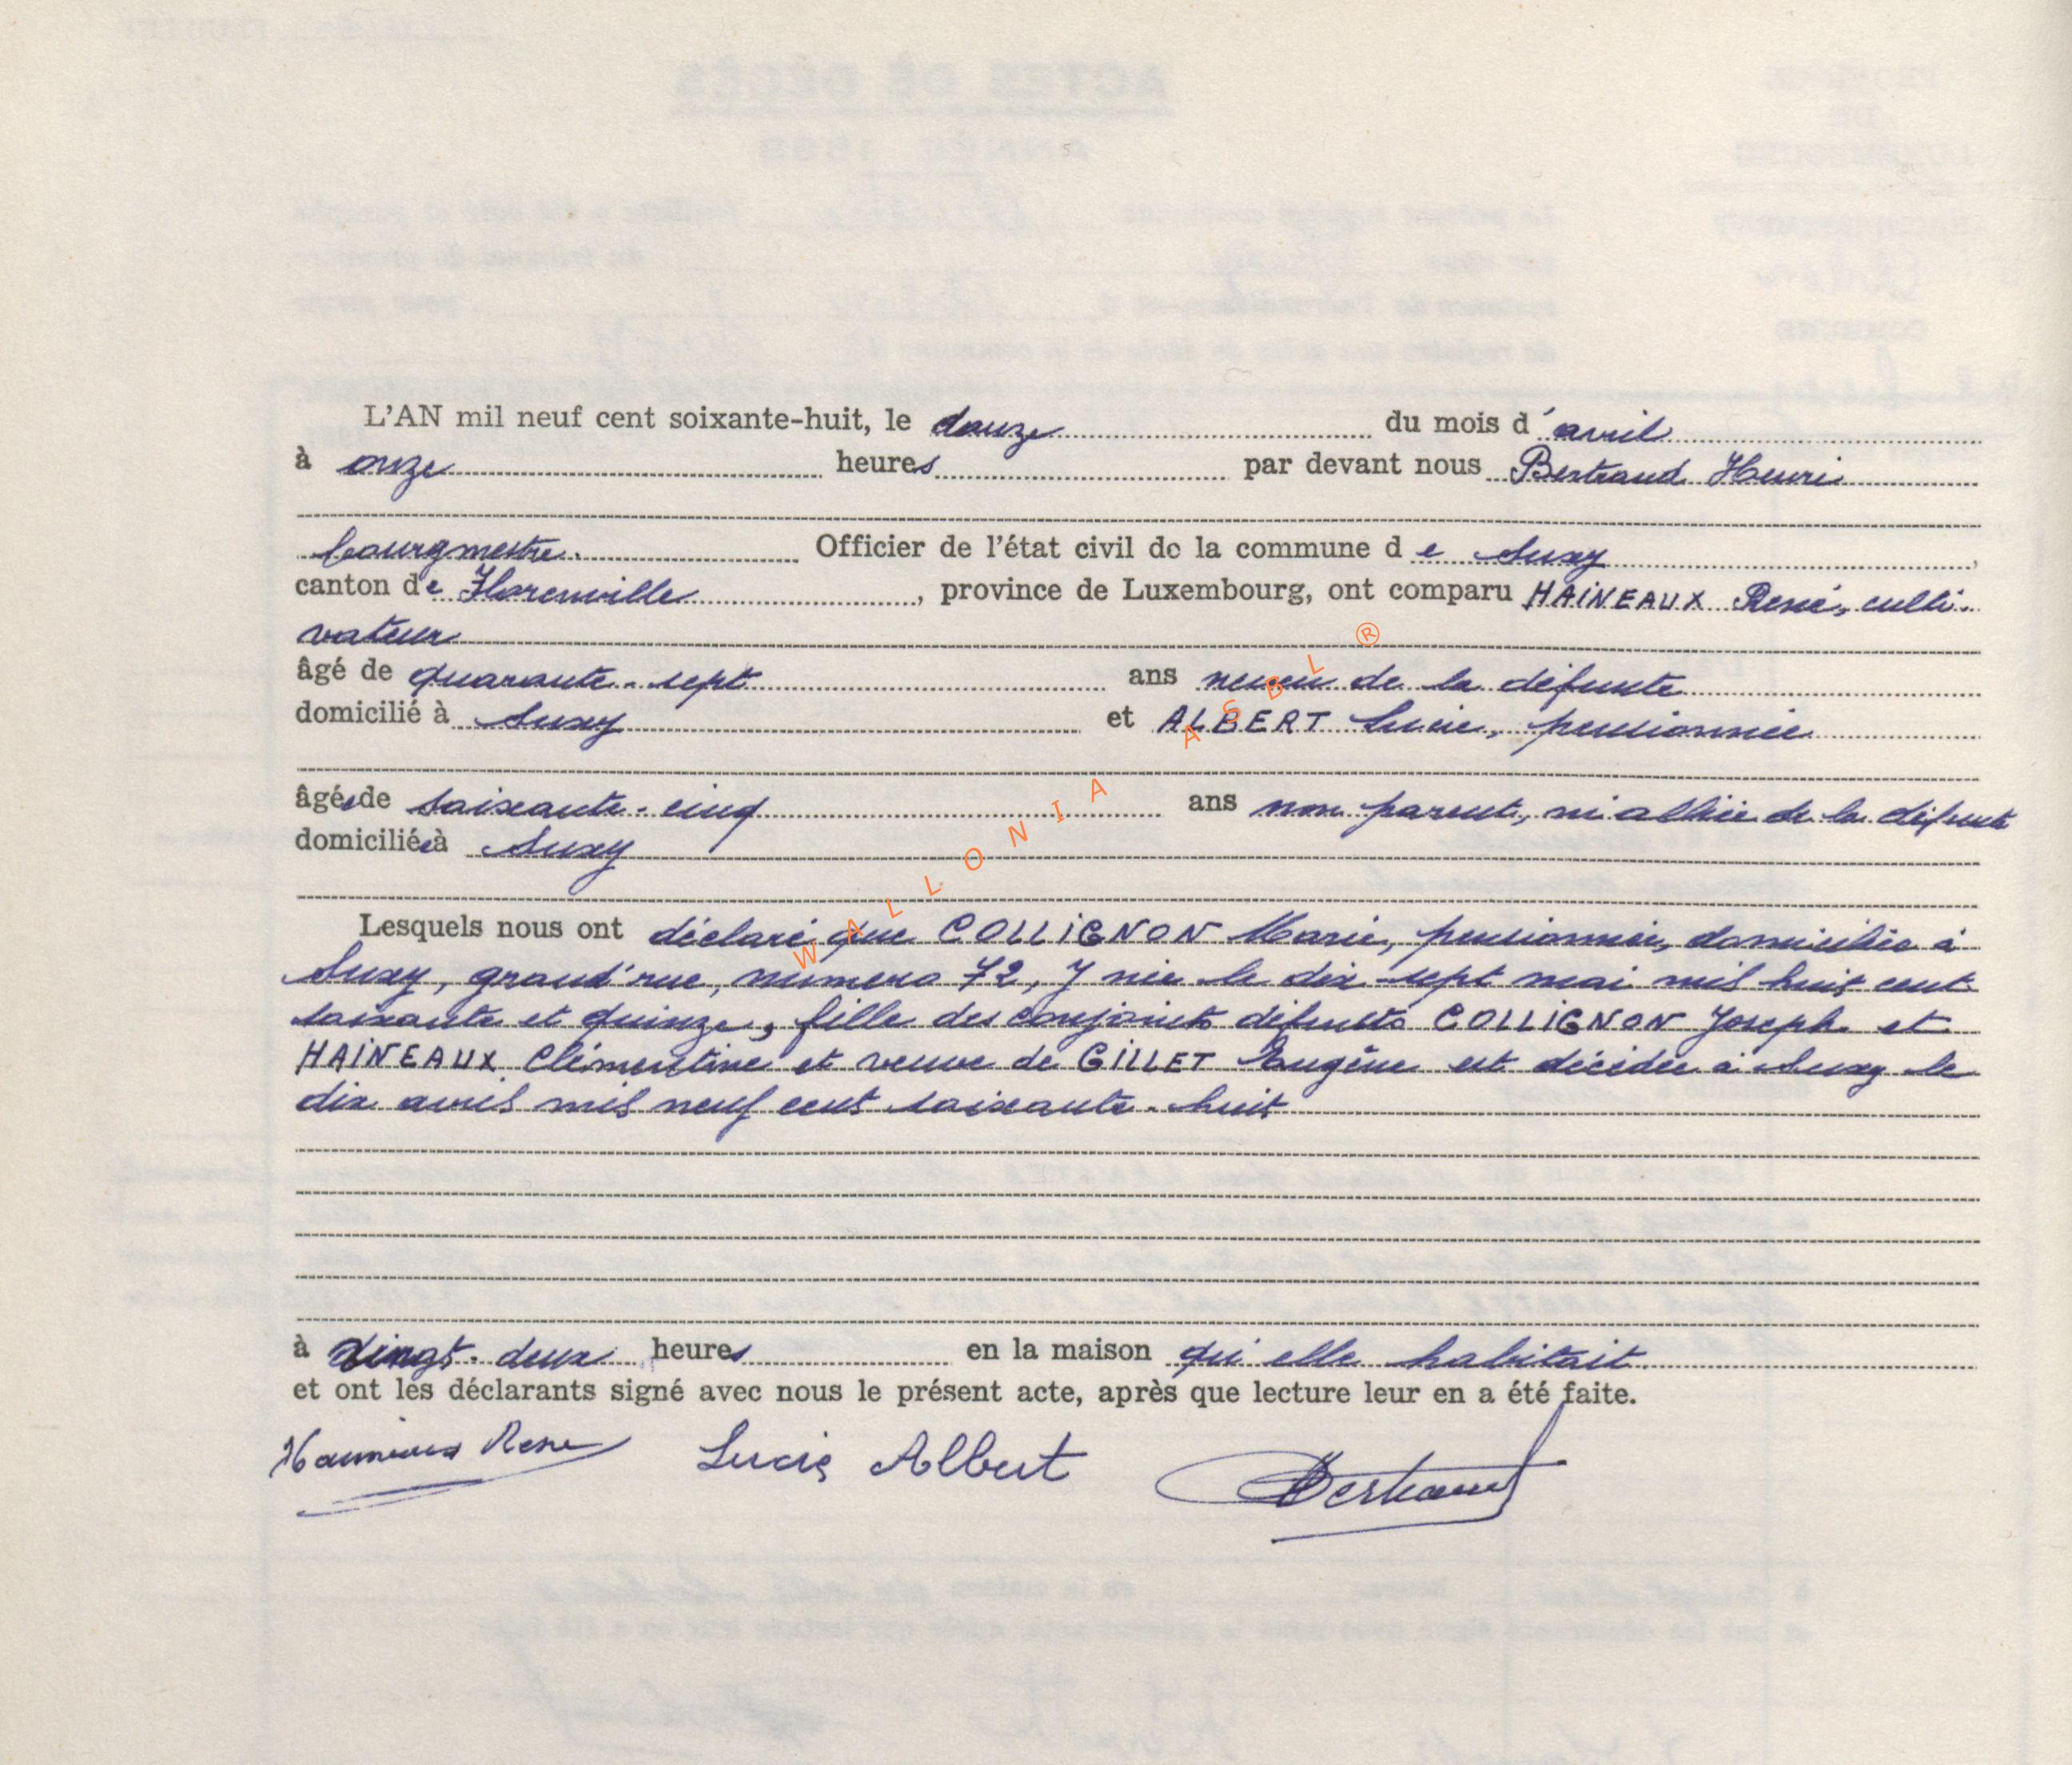 L'AN mil neuf cent soixante-huit, le douze du mois d'avril
à onze heures par devant nous Bertrand Henri
bourgmestre. Officier de l'état civil de la commune de Suxy,
canton de Florenville, province de Luxembourg, ont comparu HAINEAUX René, culti-
vateur
âgé de quarante-sept ans neveu de la défunte
domicilié à Suxy et ALBERT Lucie, pensionnée
âgée de soixante-cinq ans non parente, ni alliée de la défunte
domiciliée à Suxy
Lesquels nous ont déclaré que COLLIGNON Marie, pensionnée, domiciliée à
Suxy, grand'rue, numéro 72, y née le dix-sept mai mil huit cent
soixante et quinze, fille des conjoints défunts COLLIGNON Joseph et
HAINEAUX Clémentine et veuve de GILLET Eugène est décédée à Suxy le
dix avril mil neuf cent soixante-huit
à vingt-deux heures en la maison qu'elle habitait
et ont les déclarants signé avec nous le présent acte, après que lecture leur en a été faite.
Haineaux René Lucie Albert Bertrand
WALLONIA ASBL ®